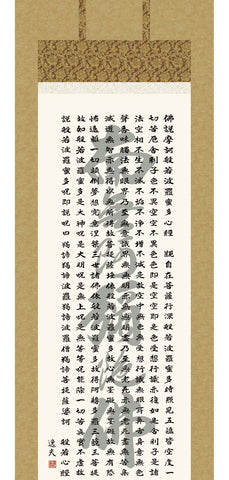 佛説摩訶般若波羅蜜多心經 觀自在菩薩行深般若波羅蜜多時照見五蘊皆空度一
切苦厄舎利子色不異空空不異色色即是空空即是色受想行識亦復如是舎利子是諸
法空相不生不滅不垢不浄不増不減是故空中無色無受想行識無眼耳鼻舌身意無色
聲香味觸法無眼界乃至無意識界無無明亦無無明盡乃至無老死亦無老死盡無苦集
滅道無智亦無得以無所得故菩提薩埵依般若波羅蜜多故心無罣礙無罣礙故無有恐
怖遠離一切顛倒夢想究竟涅槃三世諸佛依般若波羅蜜多故得阿耨多羅三藐三菩提
故知般若波羅蜜多是大神呪是大明呪是無上呪是無等等呪能除一切苦真實不虚故
説般若波羅蜜多呪即説呪曰羯諦羯諦波羅羯諦波羅僧羯諦菩提薩婆訶 般若心經
逸夫
南無阿弥陀佛